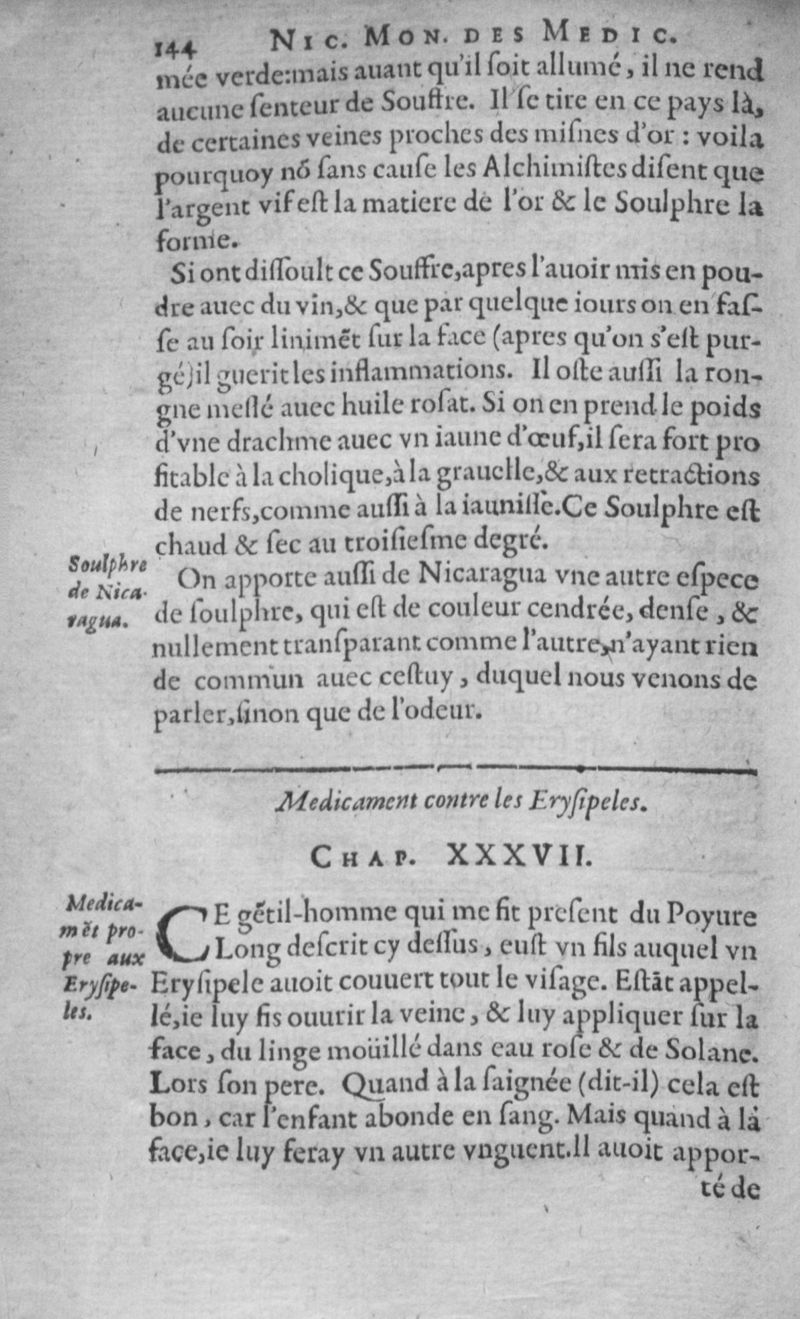 144 NIC. MON. DES MEDIC.
mée verde:mais auant qu'il ſoit allumé, il ne rend
aucune ſenteur de Souffre. Il ſe tire en ce pays là,
de certaines veines proches des miſnes d'or : voila
pourquoy nõ ſans cauſe les Alchimiſtes diſent que
l'argent vif eſt la matiere de l'or & le Soulphre la
forme.
Si ont diſſoult ce Souffre,apres l'auoir mis en pou-
dre auec du vin,& que par quelque iours on en faſ-
ſe au ſoir linimẽt ſur la face (apres qu'on s'eſt pur-
gé)il guerit les inflammations. Il oſte auſſi la ron-
gne meſlé auec huile roſat. Si on en prend le poids
d'vne drachme auec vn iaune d'œuf,il ſera fort pro
fitable à la cholique,à la grauelle,& aux retractions
de nerfs,comme auſſi à la iauniſſe.Ce Soulphre eſt
chaud & ſec au troiſieſme degré.
Soulphre
de Nica-
ragua.
On apporte auſſi de Nicaragua vne autre eſpece
de ſoulphre, qui eſt de couleur cendrée, denſe, &
nullement tranſparant comme l'autre,n'ayant rien
de commun auec ceſtuy, duquel nous venons de
parler,ſinon que de l'odeur.
Medicament contre les Eryſipeles.
CHAP. XXXVII.
Medica-
mẽt pro-
pre aux
Eryſipe-
les.
CE gẽtil-homme qui me fit preſent du Poyure
Long deſcrit cy deſſus, euſt vn fils auquel vn
Eryſipele auoit couuert tout le viſage. Eſtãt appel-
lé,ie luy fis ouurir la veine, & luy appliquer ſur la
face, du linge moüillé dans eau roſe & de Solane.
Lors ſon pere. Quand à la ſaignée (dit-il) cela eſt
bon, car l'enfant abonde en ſang. Mais quand à la
face,ie luy feray vn autre vnguent.Il auoit appor-
té de